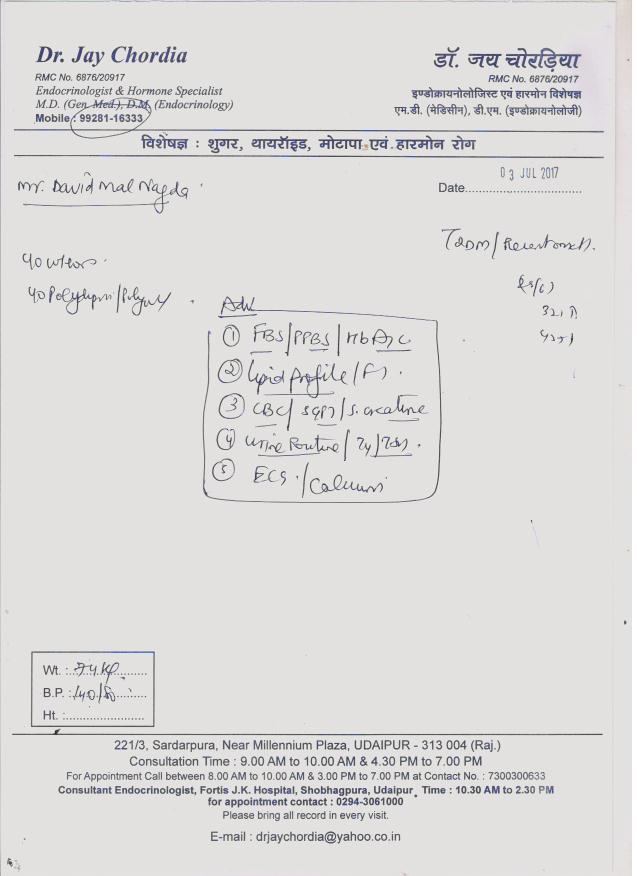 Dr. Jay Chordia
RMC No. 6876/20917
Endocrinologist & Hormone Specialist
M.D. (Gen. Med.), D.M. (Endocrinology)
Mobile : 99281-16333
डॉ. जय चोरड़िया
RMC No. 6876/20917
इण्डोक्रायनोलोजिस्ट एवं हारमोन विशेषज्ञ
एम.डी. (मेडिसीन), डी.एम. (इण्डोक्रायनोलॉजी)
विशेषज्ञ : शुगर, थायरॉइड, मोटापा एवं हारमोन रोग
Mr. David Mal Nagda
03 JUL 2017
Date..............................
T2DM/
Adv
① FBS/PPBS/HbA1c
② Lipid Profile/
③ CBC/SGPT/S. creatine
④ Urine Routine/
⑤ ECG/Calcium
Wt. : 74 Kg
B.P. : 140/80
Ht. :
221/3, Sardarpura, Near Millennium Plaza, UDAIPUR - 313 004 (Raj.)
Consultation Time : 9.00 AM to 10.00 AM & 4.30 PM to 7.00 PM
For Appointment Call between 8.00 AM to 10.00 AM & 3.00 PM to 7.00 PM at Contact No. : 7300300633
Consultant Endocrinologist, Fortis J.K. Hospital, Shobhagpura, Udaipur, Time : 10.30 AM to 2.30 PM
for appointment contact : 0294-3061000
Please bring all record in every visit.
E-mail : drjaychordia@yahoo.co.in